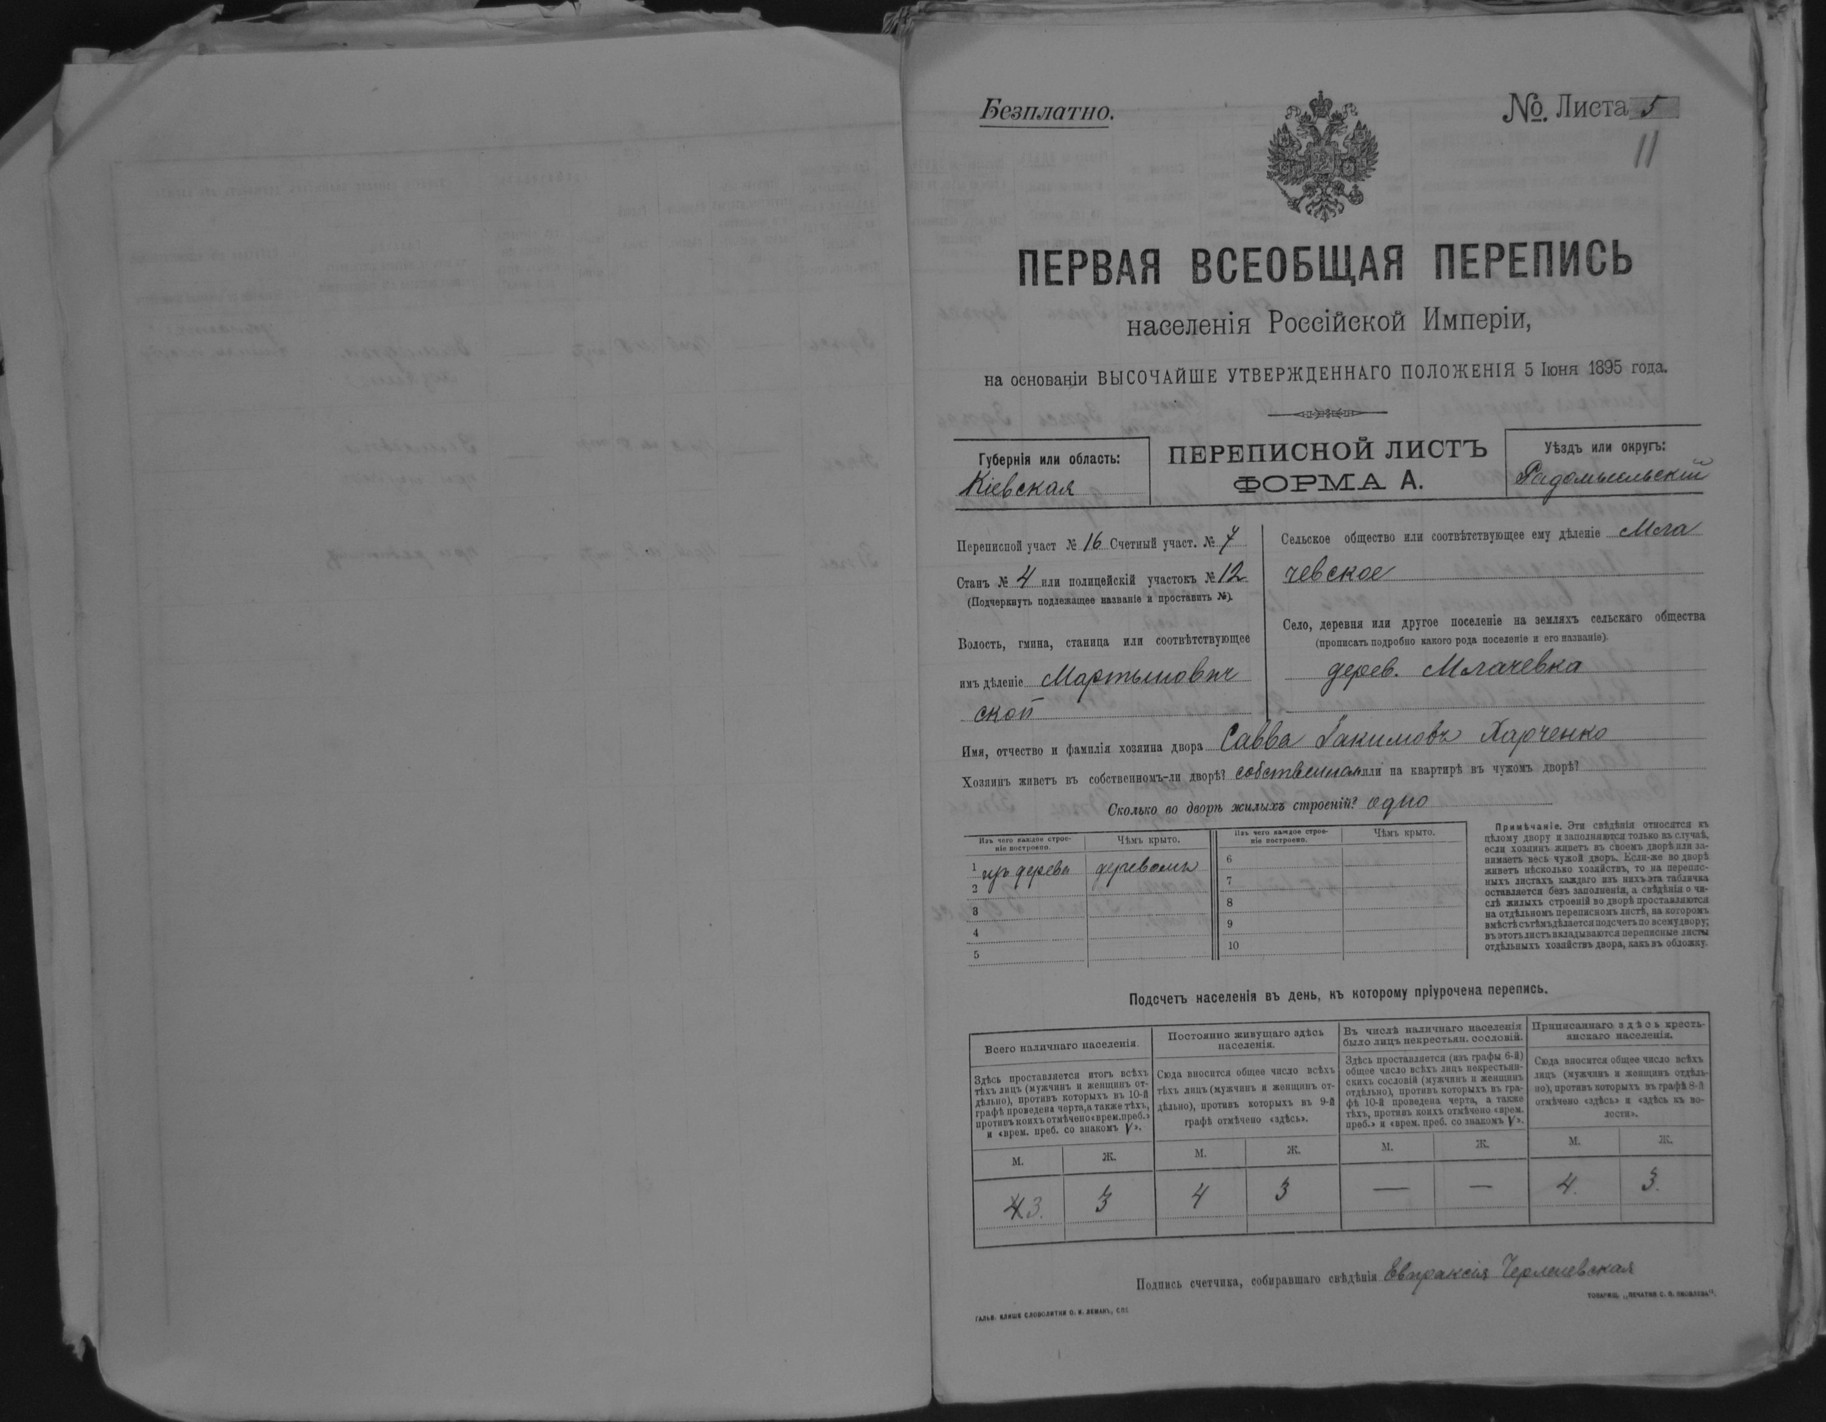 Безплатно.
№. Листа 5
11
ПЕРВАЯ ВСЕОБЩАЯ ПЕРЕПИСЬ
населенія Россійской Имперіи,
на основаніи ВЫСОЧАЙШЕ УТВЕРЖДЕННАГО ПОЛОЖЕНІЯ 5 Іюня 1895 года.
Губернія или область:
Кіевская
ПЕРЕПИСНОЙ ЛИСТЪ
ФОРМА А.
Уѣздъ или округъ:
Радомысльскій
Переписной участ № 16 Счетный участ. № 7
Станъ № 4 или полицейскій участокъ № 12
(Подчеркнуть подлежащее названіе и проставить №).
Волость, гмина, станица или соотвѣтствующее
имъ дѣленіе Мартынович
ской
Сельское общество или соотвѣтствующее ему дѣленіе Мла
чевское
Село, деревня или другое поселеніе на земляхъ сельскаго общества
(прописать подробно какого рода поселеніе и его названіе).
дерев. Млачевка
Имя, отчество и фамилія хозяина двора Савва Іакимовъ Харченко
Хозяинъ живетъ въ собственномъ-ли дворѣ? собственном или на квартирѣ въ чужомъ дворѣ?
Сколько во дворѣ жилыхъ строеній? одно
Изъ чего каждое строе-
ніе построено.
Чѣмъ крыто.
Изъ чего каждое строе-
ніе построено.
Чѣмъ крыто.
1 изъ дерева деревомъ
2
3
4
5
6
7
8
9
10
Примѣчаніе. Эти свѣдѣнія относятся къ
цѣлому двору и заполняются только въ случаѣ,
если хозяинъ живетъ въ своемъ дворѣ или за-
нимаетъ весь чужой дворъ. Если-же во дворѣ
живетъ нѣсколько хозяйствъ, то на перепис-
ныхъ листахъ каждаго изъ нихъ эта табличка
оставляется безъ заполненія, а свѣдѣнія о чи-
слѣ жилыхъ строеній во дворѣ проставляются
на отдѣльномъ переписномъ листѣ, на которомъ
вмѣстѣ съ тѣмъ дѣлается подсчетъ по всему двору;
въ этотъ листъ вкладываются переписные листы
отдѣльныхъ хозяйствъ двора, какъ въ обложку.
Подсчетъ населенія въ день, къ которому пріурочена перепись.
Всего наличнаго населенія.
Здѣсь проставляется итогъ всѣхъ
тѣхъ лицъ (мужчинъ и женщинъ от-
дѣльно), противъ которыхъ въ 10-й
графѣ проведена черта, а также тѣхъ,
противъ коихъ отмѣчено «врем. преб.»
и «врем. преб. со знакомъ V».
Постоянно живущаго здѣсь
населенія.
Сюда вносится общее число всѣхъ
тѣхъ лицъ (мужчинъ и женщинъ от-
дѣльно), противъ которыхъ въ 9-й
графѣ отмѣчено «здѣсь».
Въ числѣ наличнаго населенія
было лицъ некрестьян. сословій.
Здѣсь проставляется (изъ графы 6-й)
общее число всѣхъ лицъ некрестьян-
скихъ сословій (мужчинъ и женщинъ
отдѣльно), противъ которыхъ въ гра-
фѣ 10-й проведена черта, а также
тѣхъ, противъ коихъ отмѣчено «врем.
преб.» и «врем. преб. со знакомъ V».
Приписаннаго здѣсь кресть-
янскаго населенія.
Сюда вносится общее число всѣхъ
лицъ (мужчинъ и женщинъ отдѣль-
но), противъ которыхъ въ графѣ 8-й
отмѣчено «здѣсь» и «здѣсь къ во-
лости».
М. Ж. М. Ж. М. Ж. М. Ж.
4 3. 3 4 3 — — 4. 3.
Подпись счетчика, собиравшаго свѣдѣнія Евпраксія
ГАЛЬВ. КЛИШЕ СЛОВОЛИТНИ О. И. ЛЕМАНЪ, СПБ
ТОВАРИЩ. „ПЕЧАТНЯ С. П. ЯКОВЛЕВА“.